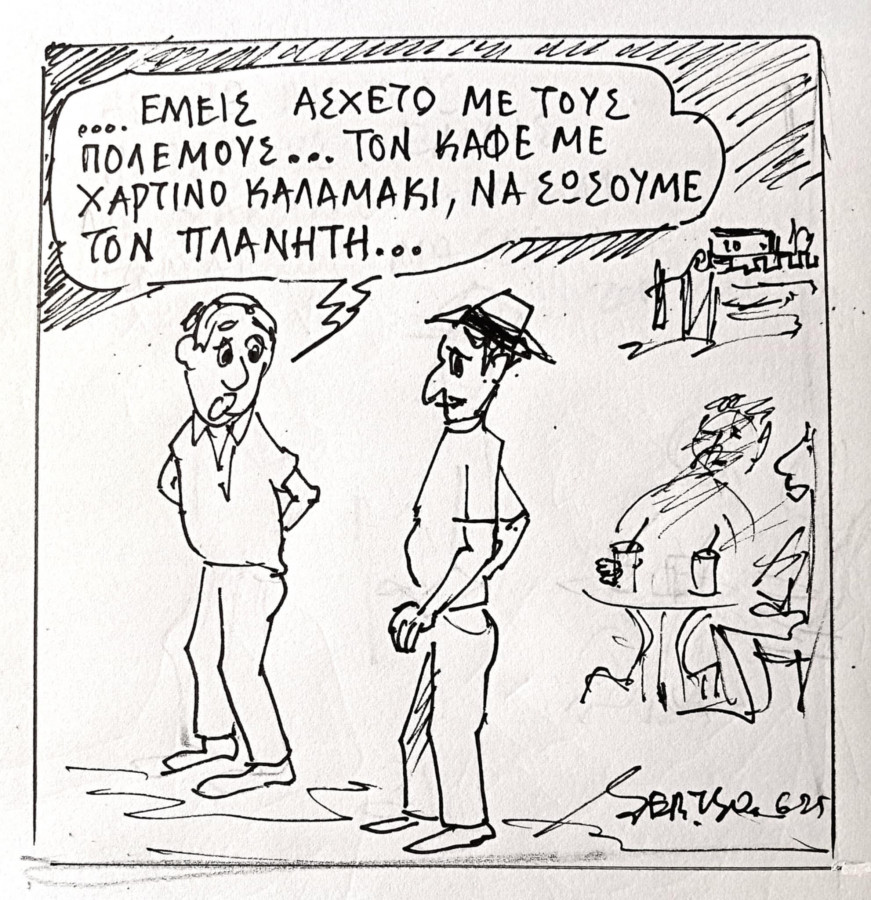 .... ΕΜΕΙΣ ΑΣΧΕΤΟ ΜΕ ΤΟΥΣ
ΠΟΛΕΜΟΥΣ... ΤΟΝ ΚΑΦΕ ΜΕ
ΧΑΡΤΙΝΟ ΚΑΛΑΜΑΚΙ, ΝΑ ΣΩΣΟΥΜΕ
ΤΟΝ ΠΛΑΝΗΤΗ...